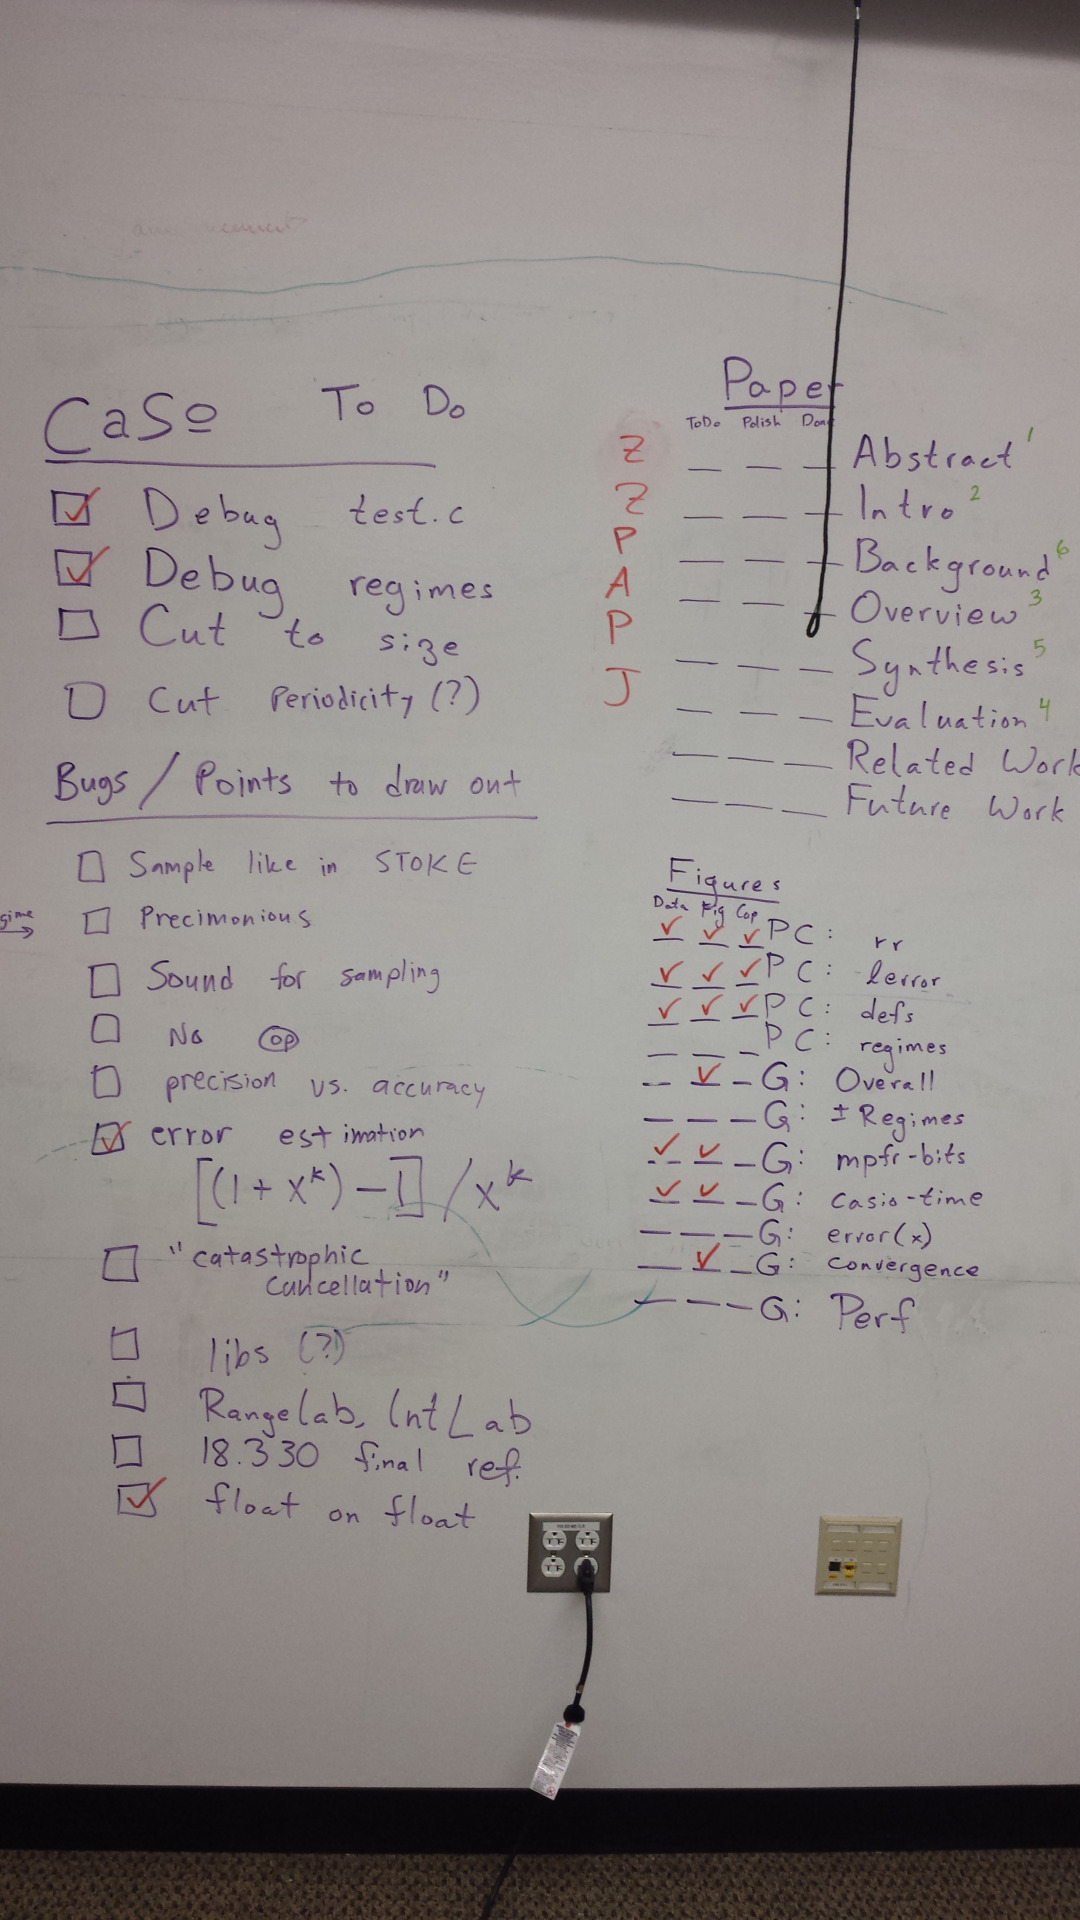 CaSo To Do
Debug test.c
Debug regimes
Cut to size
Cut Periodicity (?)
Bugs / Points to draw out
Sample like in STOKE
Precimonious
Sound for sampling
No op
precision vs. accuracy
error estimation
[(1 + x^k) - 1] / x^k
"catastrophic
cancellation"
libs (?)
Rangelab, IntLab
18.330 final ref.
float on float
Paper
ToDo Polish Done
Z Abstract 1
Z Intro 2
P Background 6
A Overview 3
P Synthesis 5
J Evaluation 4
Related Work
Future Work
Figures
Data Fig Cap
PC: rr
PC: lerror
PC: defs
PC: regimes
G: Overall
G: ± Regimes
G: mpfr-bits
G: casio-time
G: error(x)
G: convergence
G: Perf